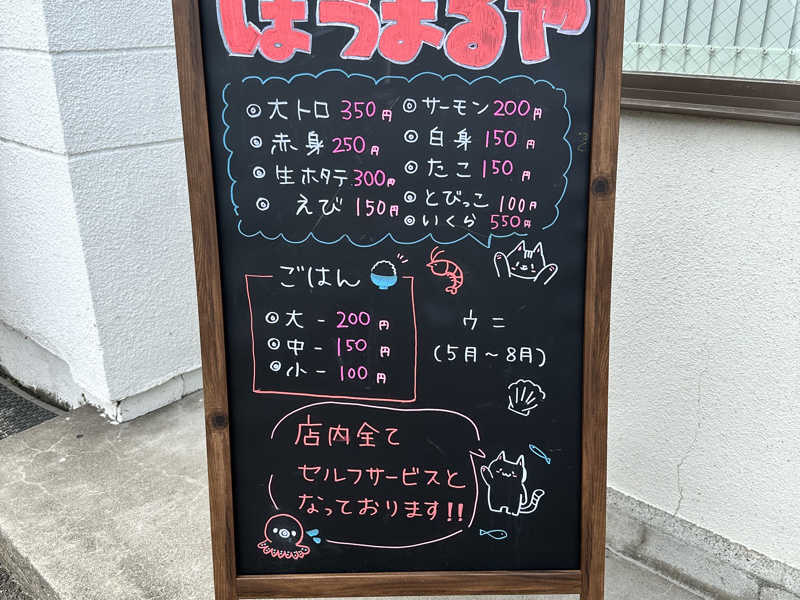 ほうまるや
◎大トロ 350円
◎赤身 250円
◎生ホタテ 300円
◎えび 150円
◎サーモン 200円
◎白身 150円
◎たこ 150円
◎とびっこ 100円
◎いくら 550円
ごはん
◎大 - 200円
◎中 - 150円
◎小 - 100円
ウニ
(5月~8月)
店内全て
セルフサービスと
なっております!!